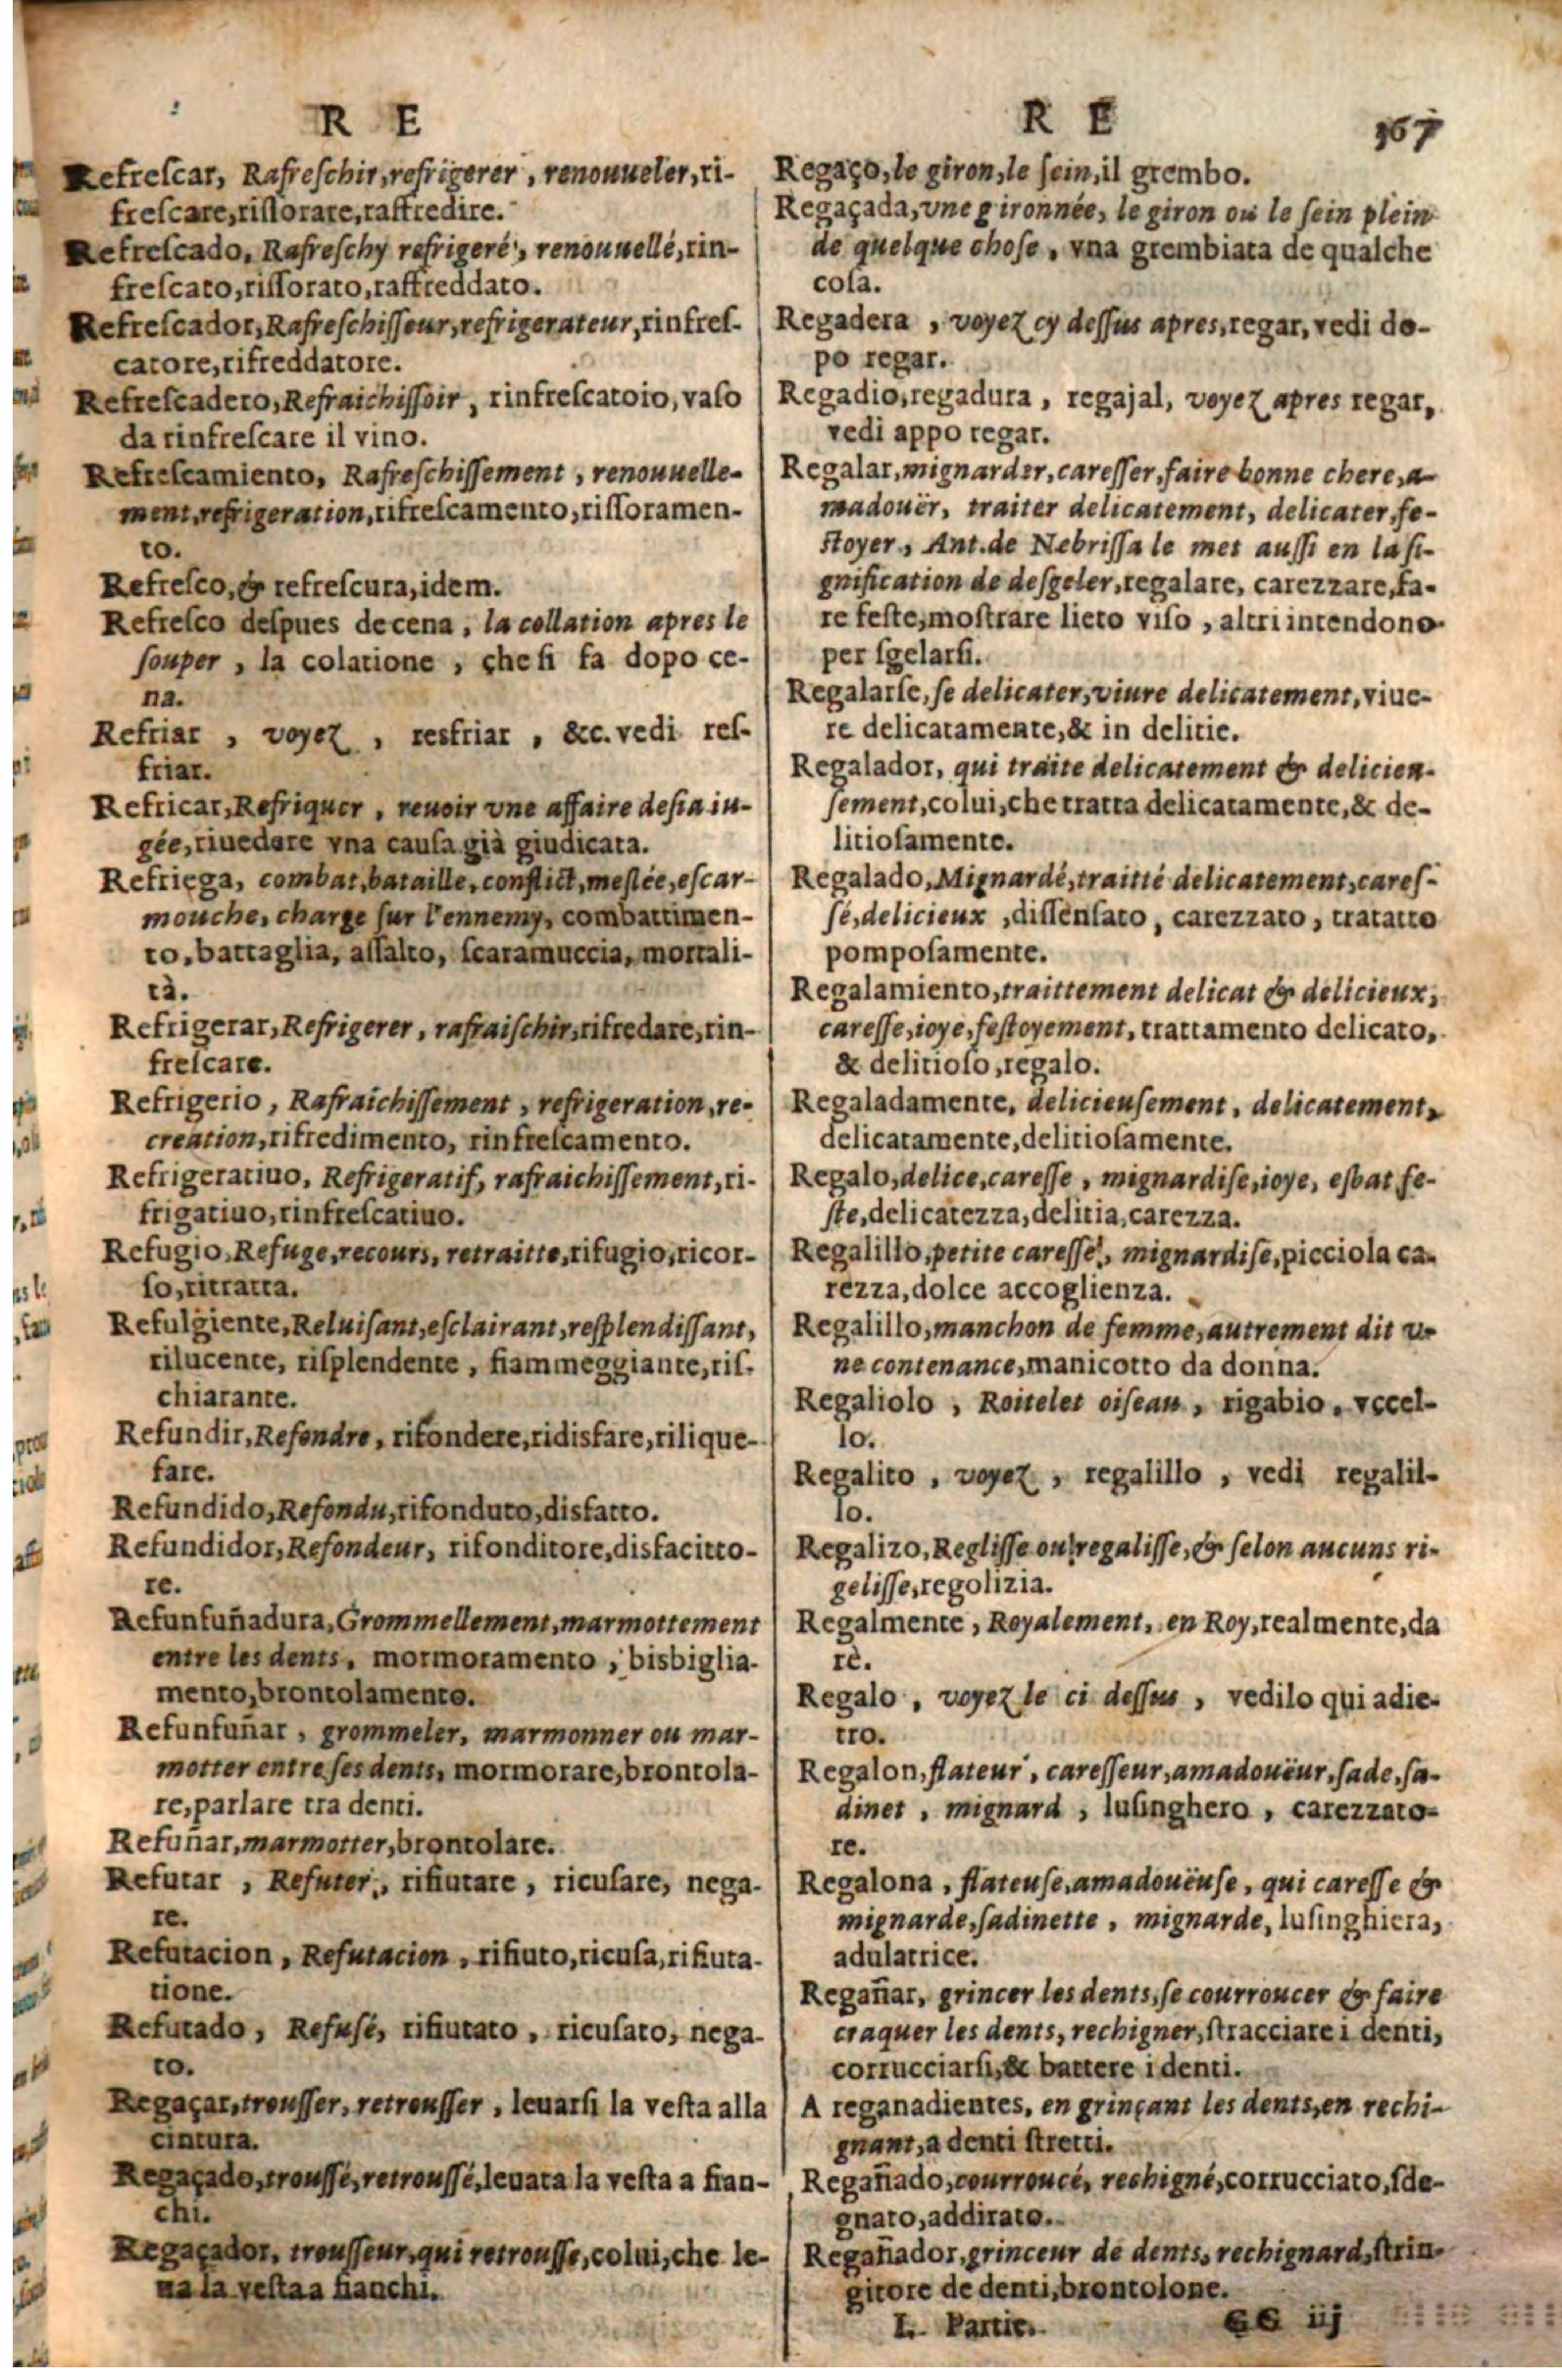 R E
Refrescar, Rafreschir, refrigerer, renouueler, ri-
frescare, ristorare, raffredire.
Refrescado, Rafreschy refrigeré, renouuellé, rin-
frescato, rissorato, raffreddato.
Refrescador, Rafreschisseur, refrigerateur, rinfres-
catore, rifreddatore.
Refrescadero, Refraichissoir, rinfrescatoio, vaso
da rinfrescare il vino.
Refrescamiento, Rafreschissement, renouuelle-
ment, refrigeration, rifrescamento, rissoramen-
to.
Refresco, & refrescura, idem.
Refresco despues de cena, la collation apres le
souper, la colatione, che si fa dopo ce-
na.
Refriar, voyez, resfriar, &c. vedi res-
friar.
Refricar, Refriquer, reuoir vne affaire desia iu-
gée, riuedere vna causa già giudicata.
Refriega, combat, bataille, conflict, meslée, escar-
mouche, charge sur l'ennemy, combattimen-
to, battaglia, assalto, scaramuccia, mortali-
tà.
Refrigerar, Refrigerer, rafraischir, rifredare, rin-
frescare.
Refrigerio, Rafraichissement, refrigeration, re-
creation, rifredimento, rinfrescamento.
Refrigeratiuo, Refrigeratif, rafraichissement, ri-
frigatiuo, rinfrescatiuo.
Refugio, Refuge, recours, retraitte, rifugio, ricor-
so, ritratta.
Refulgiente, Reluisant, esclairant, resplendissant,
rilucente, risplendente, fiammeggiante, ris-
chiarante.
Refundir, Refondre, rifondere, ridisfare, rilique-
fare.
Refundido, Refondu, rifonduto, disfatto.
Refundidor, Refondeur, rifonditore, disfacitto-
re.
Refunfuñadura, Grommellement, marmottement
entre les dents, mormoramento, bisbiglia-
mento, brontolamento.
Refunfuñar, grommeler, marmonner ou mar-
motter entre ses dents, mormorare, brontola-
re, parlare tra denti.
Refuñar, marmotter, brontolare.
Refutar, Refuter, rifiutare, ricusare, nega-
re.
Refutacion, Refutacion, rifiuto, ricusa, rifiuta-
tione.
Refutado, Refusé, rifiutato, ricusato, nega-
to.
Regaçar, trousser, retrousser, leuarsi la vesta alla
cintura.
Regaçado, troussé, retroussé, leuata la vesta a fian-
chi.
Regaçador, trousseur, qui retrousse, colui, che le-
ua la vesta a fianchi.
R E 367
Regaço, le giron, le sein, il grembo.
Regaçada, vne gironnée, le giron ou le sein plein
de quelque chose, vna grembiata de qualche
cosa.
Regadera, voyez cy dessus apres, regar, vedi do-
po regar.
Regadio, regadura, regajal, voyez apres regar,
vedi appo regar.
Regalar, mignarder, caresser, faire bonne chere, a-
madouër, traiter delicatement, delicater, fe-
stoyer, Ant. de Nebrissa le met aussi en la si-
gnification de desgeler, regalare, carezzare, fa-
re feste, mostrare lieto viso, altri intendono
per sgelarsi.
Regalarse, se delicater, viure delicatement, viue-
re delicatamente, & in delitie.
Regalador, qui traite delicatement & delicieu-
sement, colui, che tratta delicatamente, & de-
litiosamente.
Regalado, Mignardé, traitté delicatement, cares-
sé, delicieux, dissensato, carezzato, tratatto
pomposamente.
Regalamiento, traittement delicat & delicieux,
caresse, ioye, festoyement, trattamento delicato,
& delitioso, regalo.
Regaladamente, delicieusement, delicatement,
delicatamente, delitiosamente.
Regalo, delice, caresse, mignardise, ioye, esbat, fe-
ste, delicatezza, delitia, carezza.
Regalillo, petite caresse, mignardise, picciola ca-
rezza, dolce accoglienza.
Regalillo, manchon de femme, autrement dit v-
ne contenance, manicotto da donna.
Regaliolo, Roitelet oiseau, rigabio, vccel-
lo.
Regalito, voyez, regalillo, vedi regalil-
lo.
Regalizo, Reglisse ou regalisse, & selon aucuns ri-
gelisse, regolizia.
Regalmente, Royalement, en Roy, realmente, da
rè.
Regalo, voyez le ci dessus, vedilo qui adie-
tro.
Regalon, flateur, caresseur, amadouëur, sade, sa-
dinet, mignard, lusinghero, carezzato-
re.
Regalona, flateuse, amadouëuse, qui caresse &
mignarde, sadinette, mignarde, lusinghiera,
adulatrice.
Regañar, grincer les dents, se courroucer & faire
craquer les dents, rechigner, stracciare i denti,
corrucciarsi, & battere i denti.
A reganadientes, en grinçant les dents, en rechi-
gnant, a denti stretti.
Regañado, courroucé, rechigné, corrucciato, sde-
gnato, addirato.
Regañador, grinceur de dents, rechignard, strin-
gitore de denti, brontolone.
I. Partie. GG iij